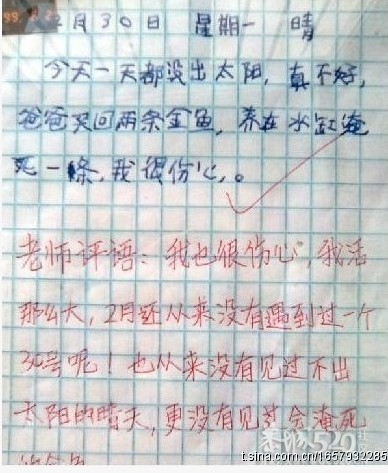 2月30日 星期一 晴
今天一天都没出太阳，真不好，
爸爸买回两条金鱼，养在水缸淹
死一條，我很伤心，。
老师评语：我也很伤心，我活
那么大，2月还从来没有遇到过一个
30号呢！也从来没有见过不出
太阳的晴天，更没有见过会淹死
的金鱼
t.sina.com.cn/1657932285